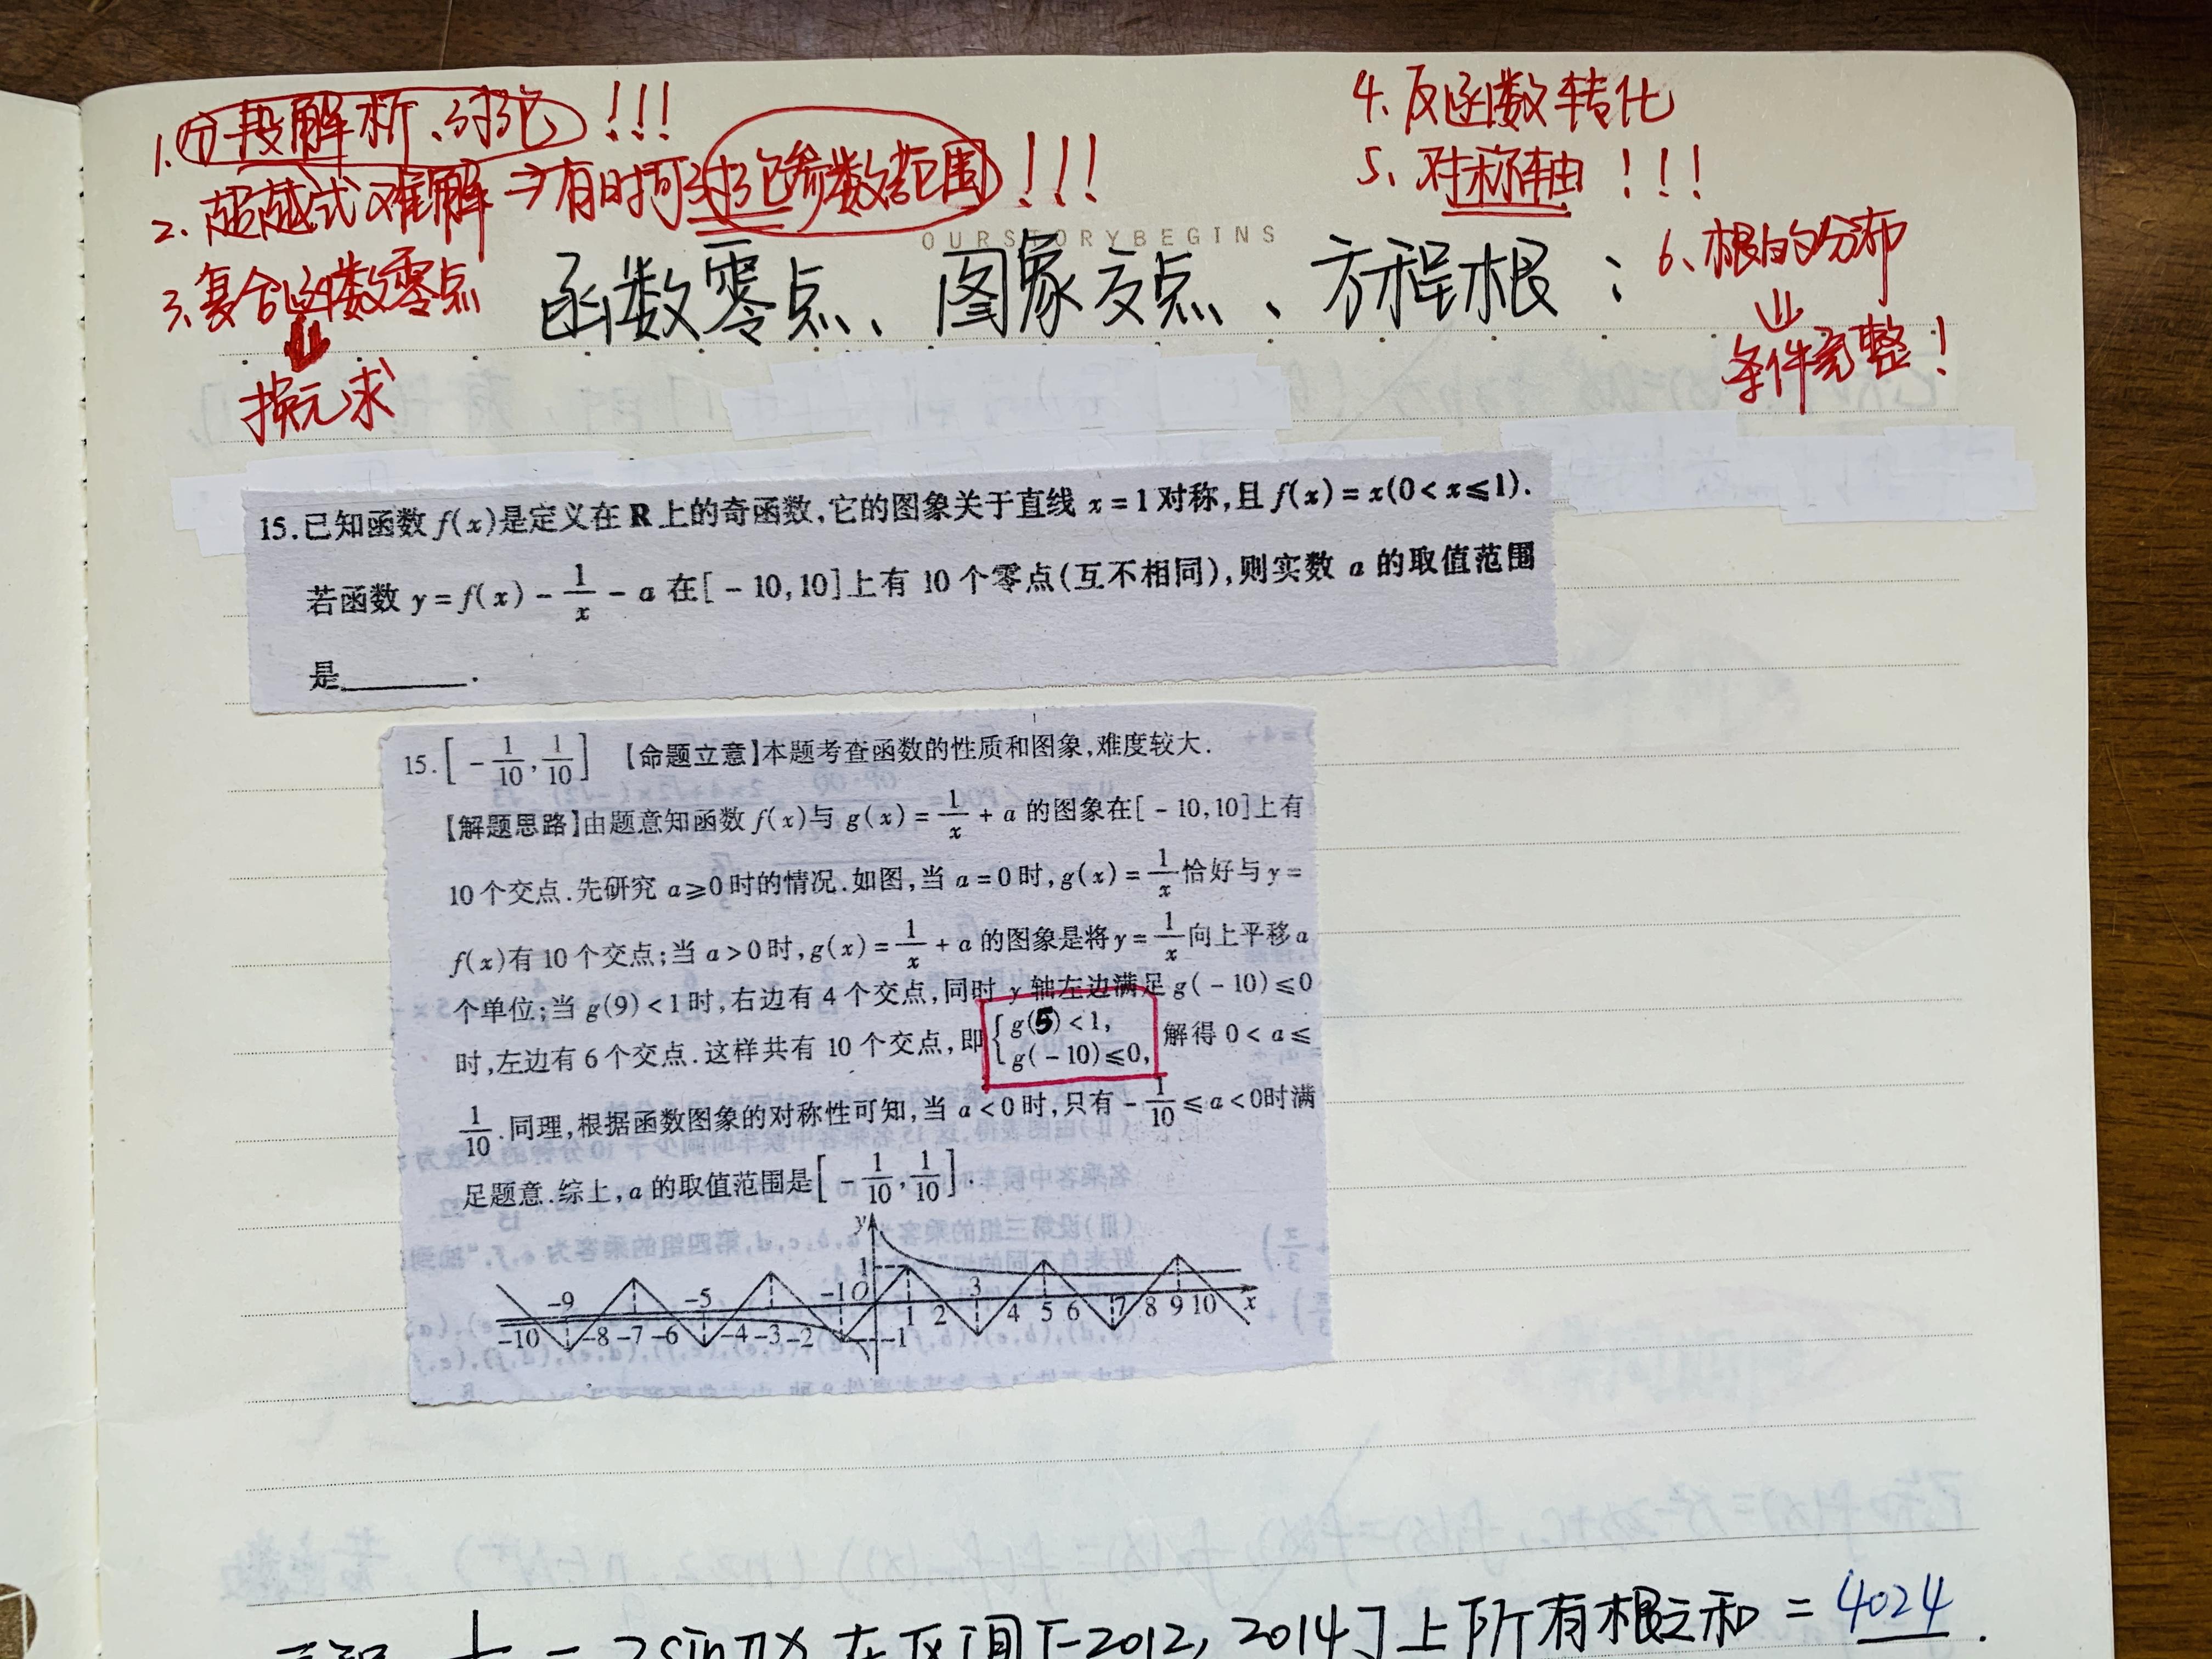 1. 分段解析、讨论 !!!
2. 超越式难解 ⇒ 有时可讨论参数范围 !!!
3. 复合函数零点
⇓
换元求
4. 反函数转化
5. 对称轴 !!!
6. 根的分布
⇓
条件完整!
OURSTORYBEGINS
函数零点、图象交点、方程根:
15. 已知函数 f(x)是定义在 R 上的奇函数,它的图象关于直线 x = 1 对称,且 f(x) = x(0 < x ⩽ 1).
若函数 y = f(x) - 1/x - a 在[ - 10, 10]上有 10 个零点(互不相同),则实数 a 的取值范围
是________.
15. [ - 1/10, 1/10 ] 【命题立意】本题考查函数的性质和图象,难度较大.
【解题思路】由题意知函数 f(x)与 g(x) = 1/x + a 的图象在[ - 10, 10]上有
10 个交点. 先研究 a⩾0 时的情况. 如图, 当 a = 0 时, g(x) = 1/x 恰好与 y =
f(x)有 10 个交点; 当 a > 0 时, g(x) = 1/x + a 的图象是将 y = 1/x 向上平移 a
个单位; 当 g(9) < 1 时, 右边有 4 个交点, 同时 y 轴左边满足 g( - 10) ⩽ 0
时, 左边有 6 个交点. 这样共有 10 个交点, 即 { g(5) < 1, g( - 10) ⩽ 0, 解得 0 < a ⩽
1/10. 同理, 根据函数图象的对称性可知, 当 a < 0 时, 只有 - 1/10 ⩽ a < 0时满
足题意. 综上, a 的取值范围是[ - 1/10, 1/10 ].
y
1
-9 -5 -1 O 3
1 2 4 5 6 7 8 9 10 x
-10 -8 -7 -6 -4 -3 -2 -1
1/ = 2sinπx 在区间[-2012, 2014]上所有根之和 = 4024.